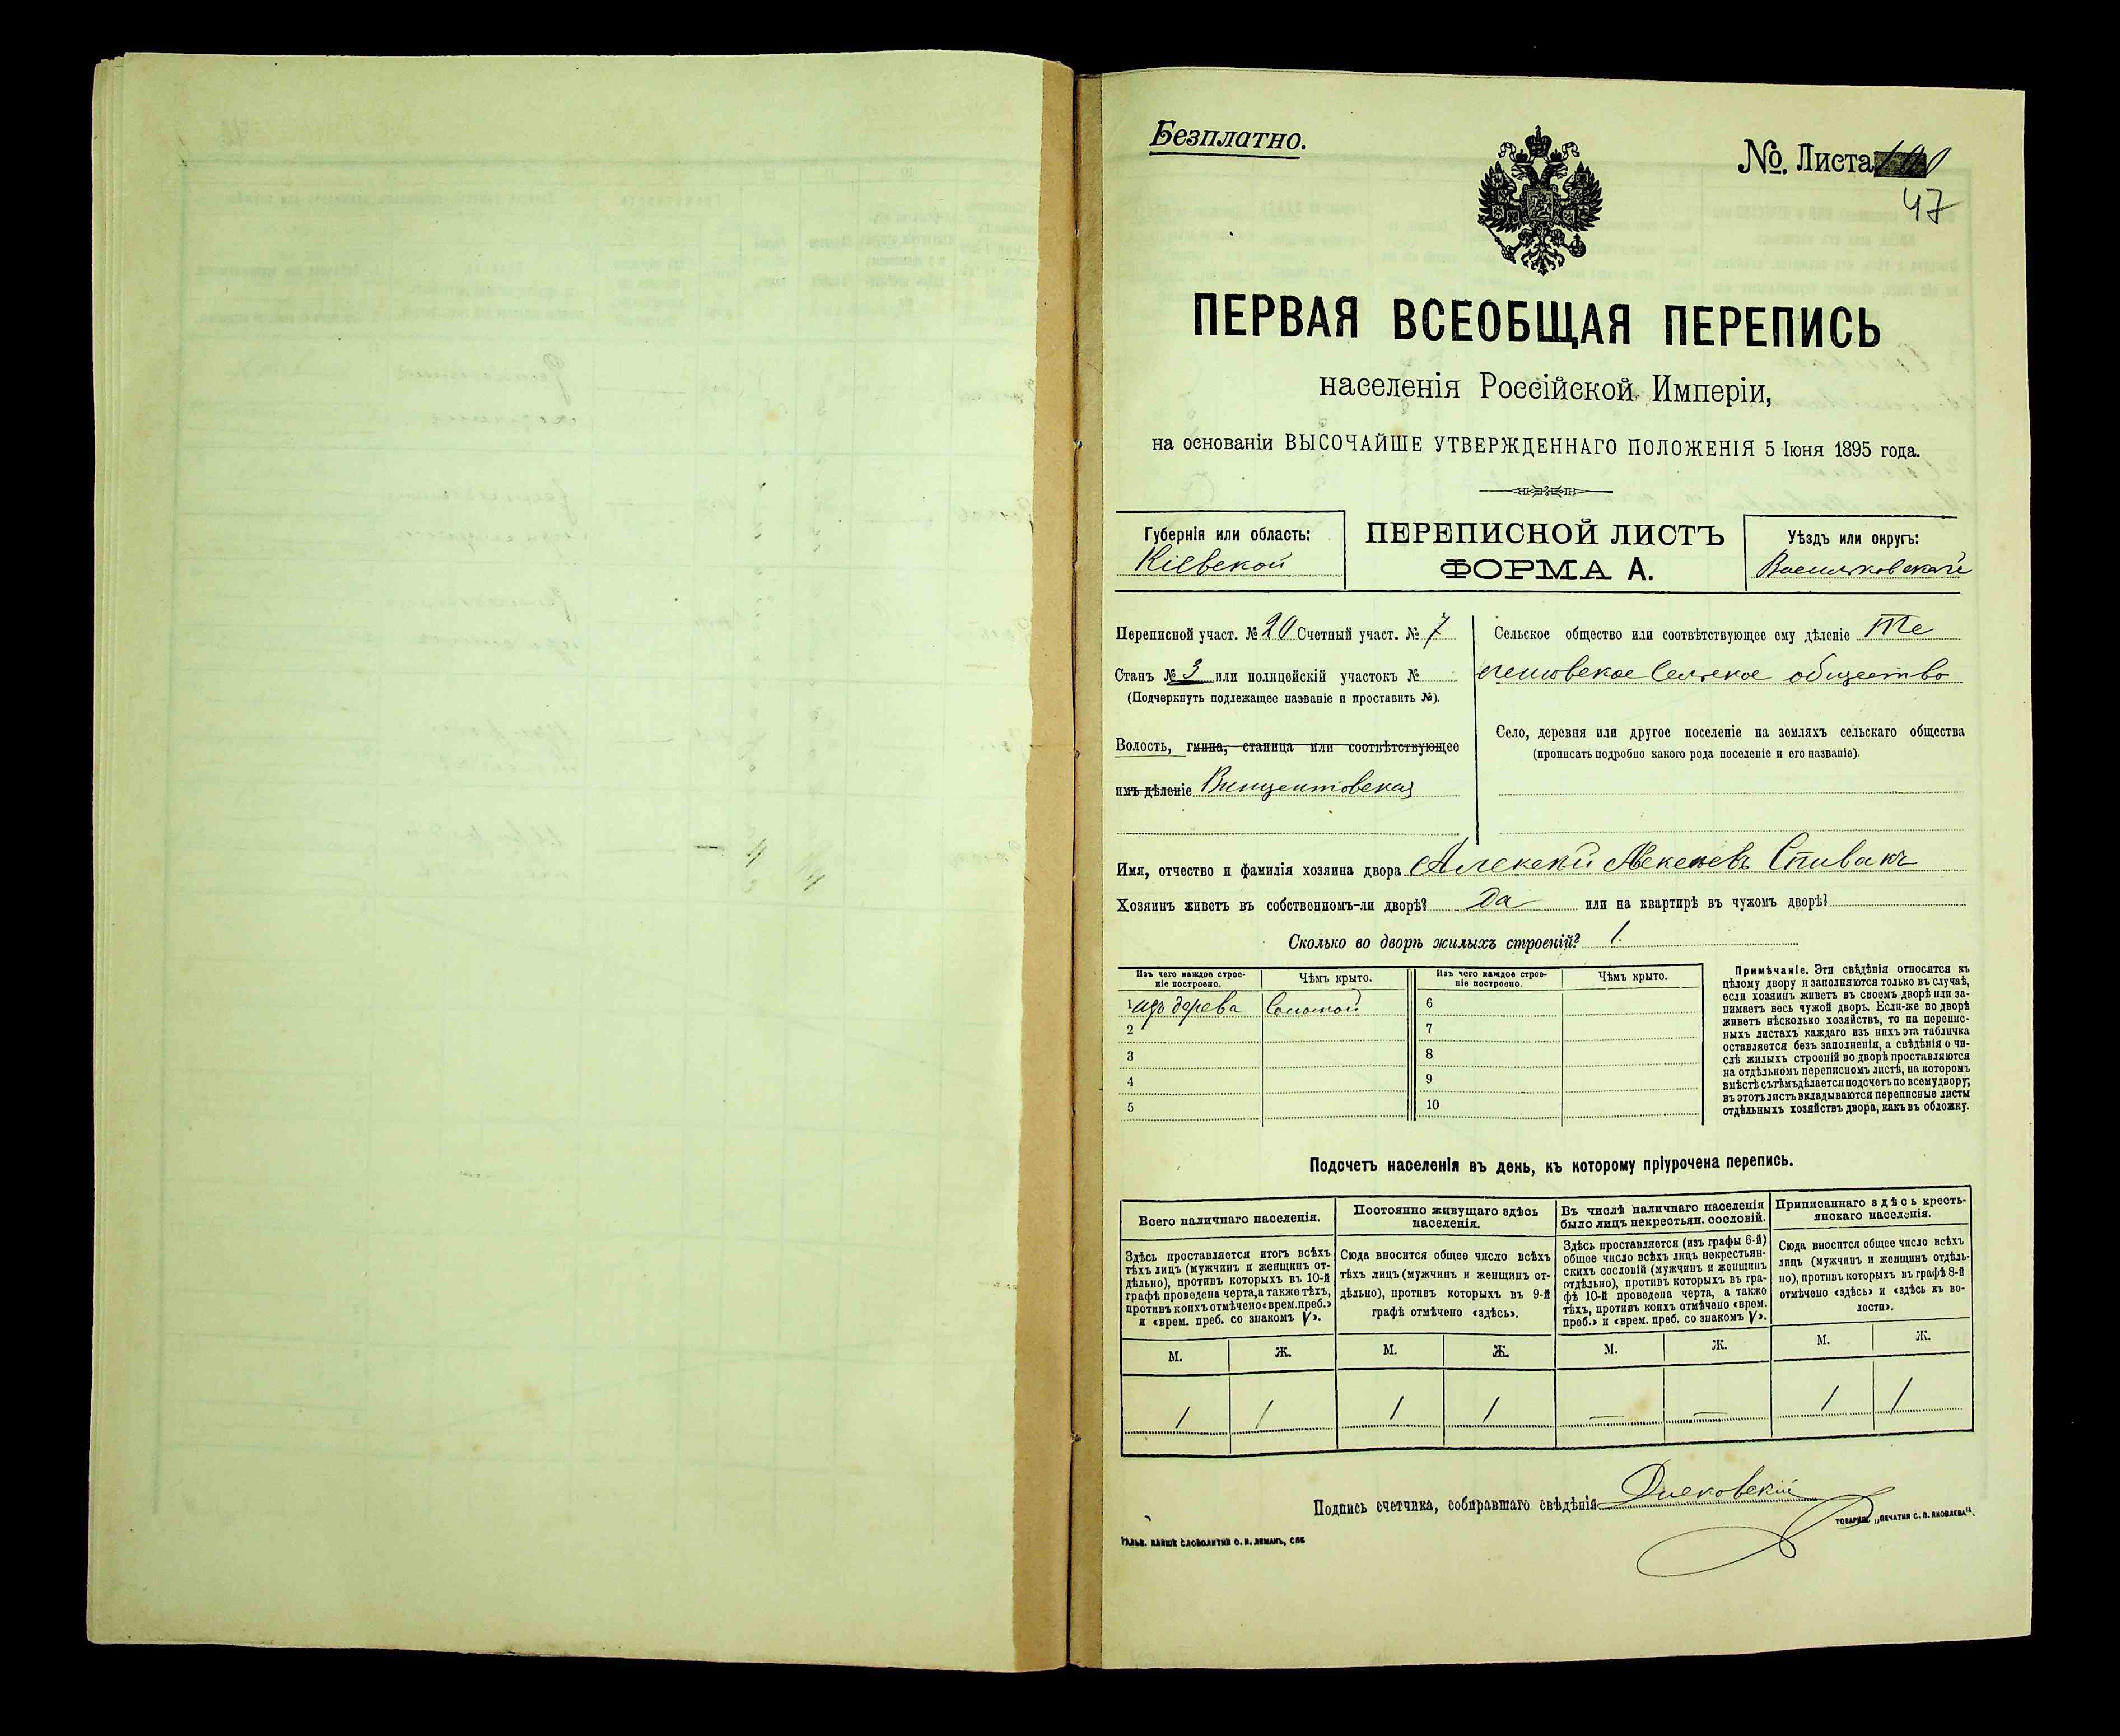 Безплатно.
№. Листа
47
ПЕРВАЯ ВСЕОБЩАЯ ПЕРЕПИСЬ
населенія Россійской Имперіи,
на основаніи ВЫСОЧАЙШЕ УТВЕРЖДЕННАГО ПОЛОЖЕНІЯ 5 Іюня 1895 года.
Губернія или область:
Кіевской
ПЕРЕПИСНОЙ ЛИСТЪ
ФОРМА А.
Уѣздъ или округъ:
Васильковской
Переписной участ. № 20 Счетный участ. № 7
Станъ № 3 или полицейскій участокъ №
(Подчеркнуть подлежащее названіе и проставить №).
Волость, гмина, станица или соотвѣтствующее
имъ дѣленіе Винцентовская
Сельское общество или соотвѣтствующее ему дѣленіе
Сельское общество
Село, деревня или другое поселеніе на земляхъ сельскаго общества
(прописать подробно какого рода поселеніе и его названіе).
Имя, отчество и фамилія хозяина двора Алексѣй Алексеевъ Спивакъ
Хозяинъ живетъ въ собственномъ-ли дворѣ? Да или на квартирѣ въ чужомъ дворѣ?
Сколько во дворѣ жилыхъ строеній? 1.
Изъ чего каждое строе-
ніе построено.
Чѣмъ крыто.
Изъ чего каждое строе-
ніе построено.
Чѣмъ крыто.
1 изъ дерева Соломой 6
2 7
3 8
4 9
5 10
Примѣчаніе. Эти свѣдѣнія относятся къ
цѣлому двору и заполняются только въ случаѣ,
если хозяинъ живетъ въ своемъ дворѣ или за-
нимаетъ весь чужой дворъ. Если-же во дворѣ
живетъ нѣсколько хозяйствъ, то на перепис-
ныхъ листахъ каждаго изъ нихъ эта табличка
оставляется безъ заполненія, а свѣдѣнія о чи-
слѣ жилыхъ строеній во дворѣ проставляются
на отдѣльномъ переписномъ листѣ, на которомъ
вмѣстѣ съ тѣмъ дѣлается подсчетъ по всему двору;
въ этотъ листъ вкладываются переписные листы
отдѣльныхъ хозяйствъ двора, какъ въ обложку.
Подсчетъ населенія въ день, къ которому пріурочена перепись.
Всего наличнаго населенія.
Здѣсь проставляется итогъ всѣхъ
тѣхъ лицъ (мужчинъ и женщинъ от-
дѣльно), противъ которыхъ въ 10-й
графѣ проведена черта, а также тѣхъ,
противъ коихъ отмѣчено «врем. преб.»
и «врем. преб. со знакомъ V».
Постоянно живущаго здѣсь
населенія.
Сюда вносится общее число всѣхъ
тѣхъ лицъ (мужчинъ и женщинъ от-
дѣльно), противъ которыхъ въ 9-й
графѣ отмѣчено «здѣсь».
Въ числѣ наличнаго населенія
было лицъ некрестьян. сословій.
Здѣсь проставляется (изъ графы 6-й)
общее число всѣхъ лицъ некрестьян-
скихъ сословій (мужчинъ и женщинъ
отдѣльно), противъ которыхъ въ гра-
фѣ 10-й проведена черта, а также
тѣхъ, противъ коихъ отмѣчено «врем.
преб.» и «врем. преб. со знакомъ V».
Приписаннаго здѣсь кресть-
янскаго населенія.
Сюда вносится общее число всѣхъ
лицъ (мужчинъ и женщинъ отдѣль-
но), противъ которыхъ въ графѣ 8-й
отмѣчено «здѣсь» и «здѣсь къ во-
лости».
М. Ж. М. Ж. М. Ж. М. Ж.
1 1 1 1 — — 1 1
Подпись счетчика, собиравшаго свѣдѣнія
ТОВАРИЩ. „ПЕЧАТНЯ С. П. ЯКОВЛЕВА".
СЛОВОЛИТНИ О. И. ЛЕМАНЪ, СПБ